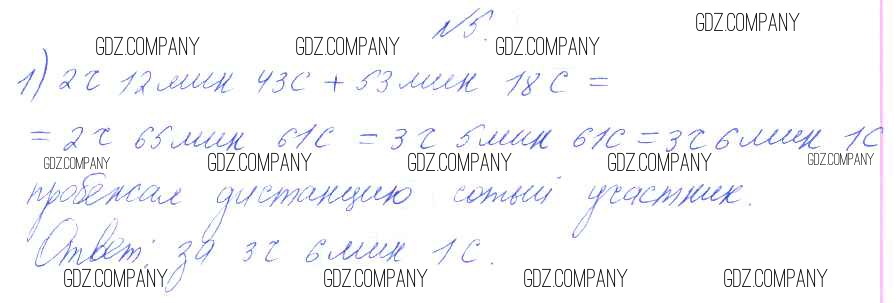 N5.
GDZ.COMPANY
GDZ.COMPANY GDZ.COMPANY GDZ.COMPANY
1) 2ч 12мин 43с + 53мин 18с =
= 2ч 65мин 61с = 3ч 5мин 61с = 3ч 6мин 1с
GDZ.COMPANY GDZ.COMPANY GDZ.COMPANY GDZ.COMPANY GDZ.COMPANY
пробежал дистанцию сотый участник.
Ответ: за 3ч 6мин 1с.
GDZ.COMPANY GDZ.COMPANY GDZ.COMPANY GDZ.COMPANY